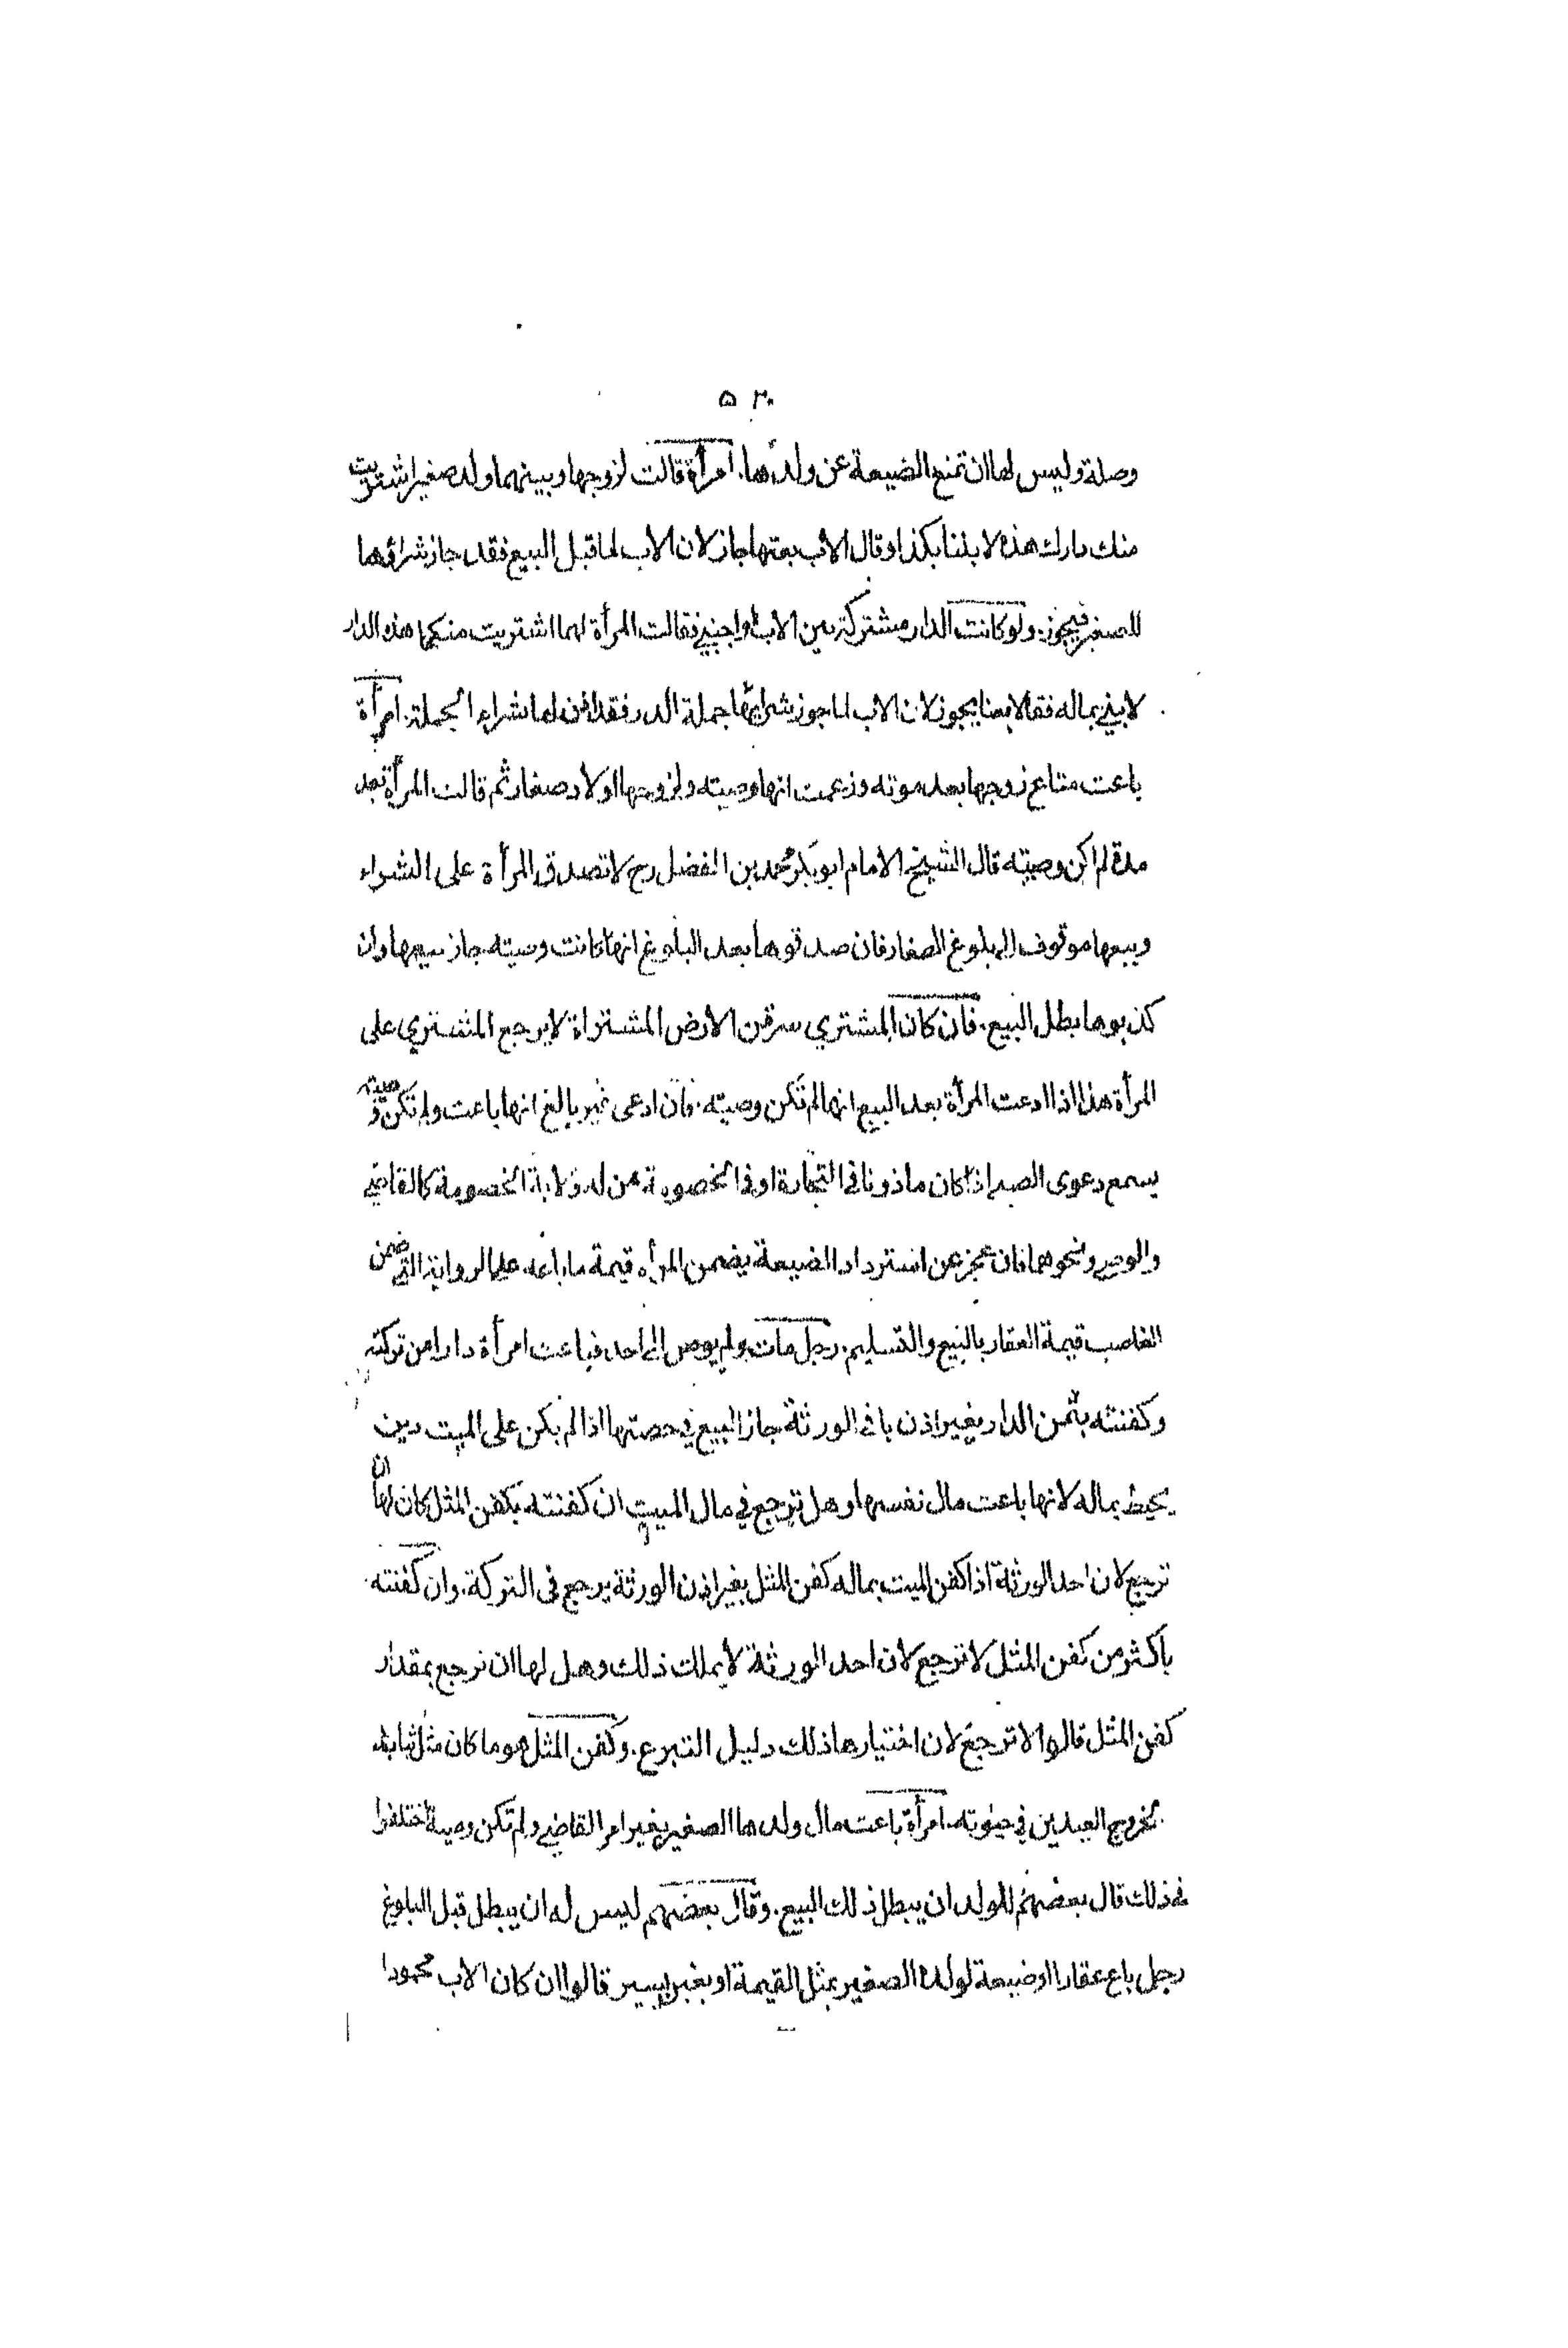 ٥٢٠
وصلة وليس لها ان تمنع الضيعة عن ولدها. امرأة قالت لزوجها وبينهما ولد صغير اشتريت
منك دارك هذه لابننا بكذا وقال الاب بعتها جاز لان الاب لما قبل البيع فقد جاز شراؤها
للصغير فيجوز. ولو كانت الدار مشتركة بين الاب واجنبي فقالت المرأة لهما اشتريت منكما هذه الدار
لابني بماله فقالا بعنا يجوز لان الاب لما جوز شراءها جملة الدار فقد اذن لها شراء الجملة. امرأة
باعت متاع زوجها بعد موته وزعمت انها وصيته ولزوجها اولاد صغار ثم قالت المرأة بعد
مدة لم اكن وصيته قال الشيخ الامام ابو بكر محمد بن الفضل رح لا تصدق المرأة على الشراء
وبيعها موقوف الى بلوغ الصغار فان صدقوها بعد البلوغ انها كانت وصيته جاز بيعها وان
كذبوها بطل البيع. فان كان المشتري سرقن الارض المشتراة لا يرجع المشتري على
المرأة هذا اذا ادعت المرأة بعد البيع انها لم تكن وصيته. فان ادعى غير بالغ انها باعت ولم تكن وصيته
يسمع دعوى الصبي اذا كان ماذونا في التجارة او في الخصومة ممن له ولاية الخصومة كالقاضي
والوصي ونحوهما فان عجز عن استرداد الضيعة يضمن المرأة قيمة ما باعه على الرواية التي ضمن
الغاصب قيمة العقار بالبيع والتسليم. رجل مات ولم يوص الى احد فباعت امرأة دارا من تركته
وكفنته بثمن الدار بغير اذن باقي الورثة جاز البيع في حصتها اذا لم يكن على الميت دين
يحيط بماله لانها باعت مال نفسها وهل ترجع في مال الميت ان كفنته بكفن المثل كان لها ان
ترجع لان احد الورثة اذا كفن الميت بماله كفن المثل بغير اذن الورثة يرجع في التركة. وان كفنته
باكثر من كفن المثل لا ترجع لان احد الورثة لا يملك ذلك وهل لها ان ترجع بمقدار
كفن المثل قالوا لا ترجع لان اختيارها ذلك دليل التبرع. وكفن المثل هو ما كان مثل ثيابه
لخروج العيدين في حيوته. امرأة باعت مال ولدها الصغير بغير امر القاضي ولم تكن وصية اختلفوا
في ذلك قال بعضهم للولد ان يبطل ذلك البيع. وقال بعضهم ليس له ان يبطل قبل البلوغ
رجل باع عقارا او ضيعة لولده الصغير بمثل القيمة او بغبن يسير قالوا ان كان الاب محمودا